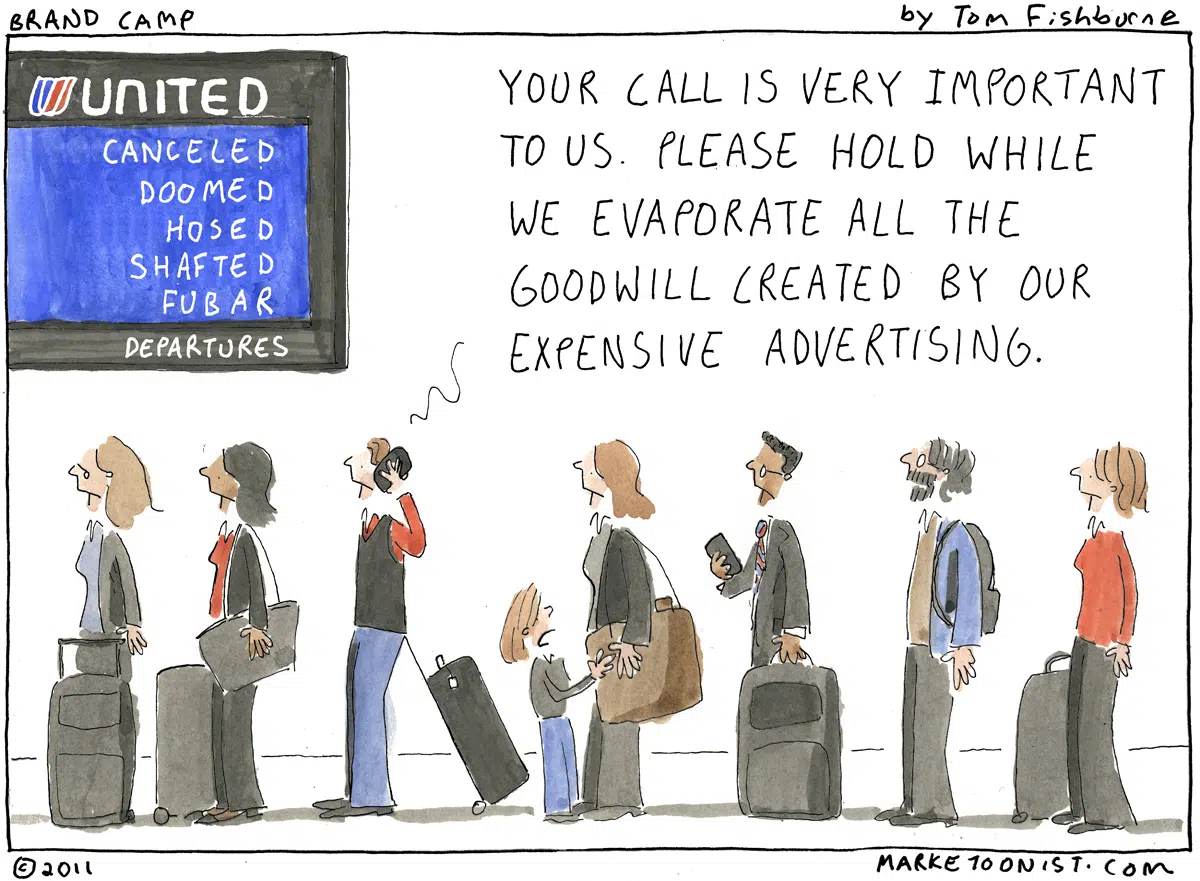 BRAND CAMP
by Tom Fishburne
UNITED
CANCELED
DOOMED
HOSED
SHAFTED
FUBAR
DEPARTURES
YOUR CALL IS VERY IMPORTANT
TO US. PLEASE HOLD WHILE
WE EVAPORATE ALL THE
GOODWILL CREATED BY OUR
EXPENSIVE ADVERTISING.
© 2011
MARKETOONIST.COM